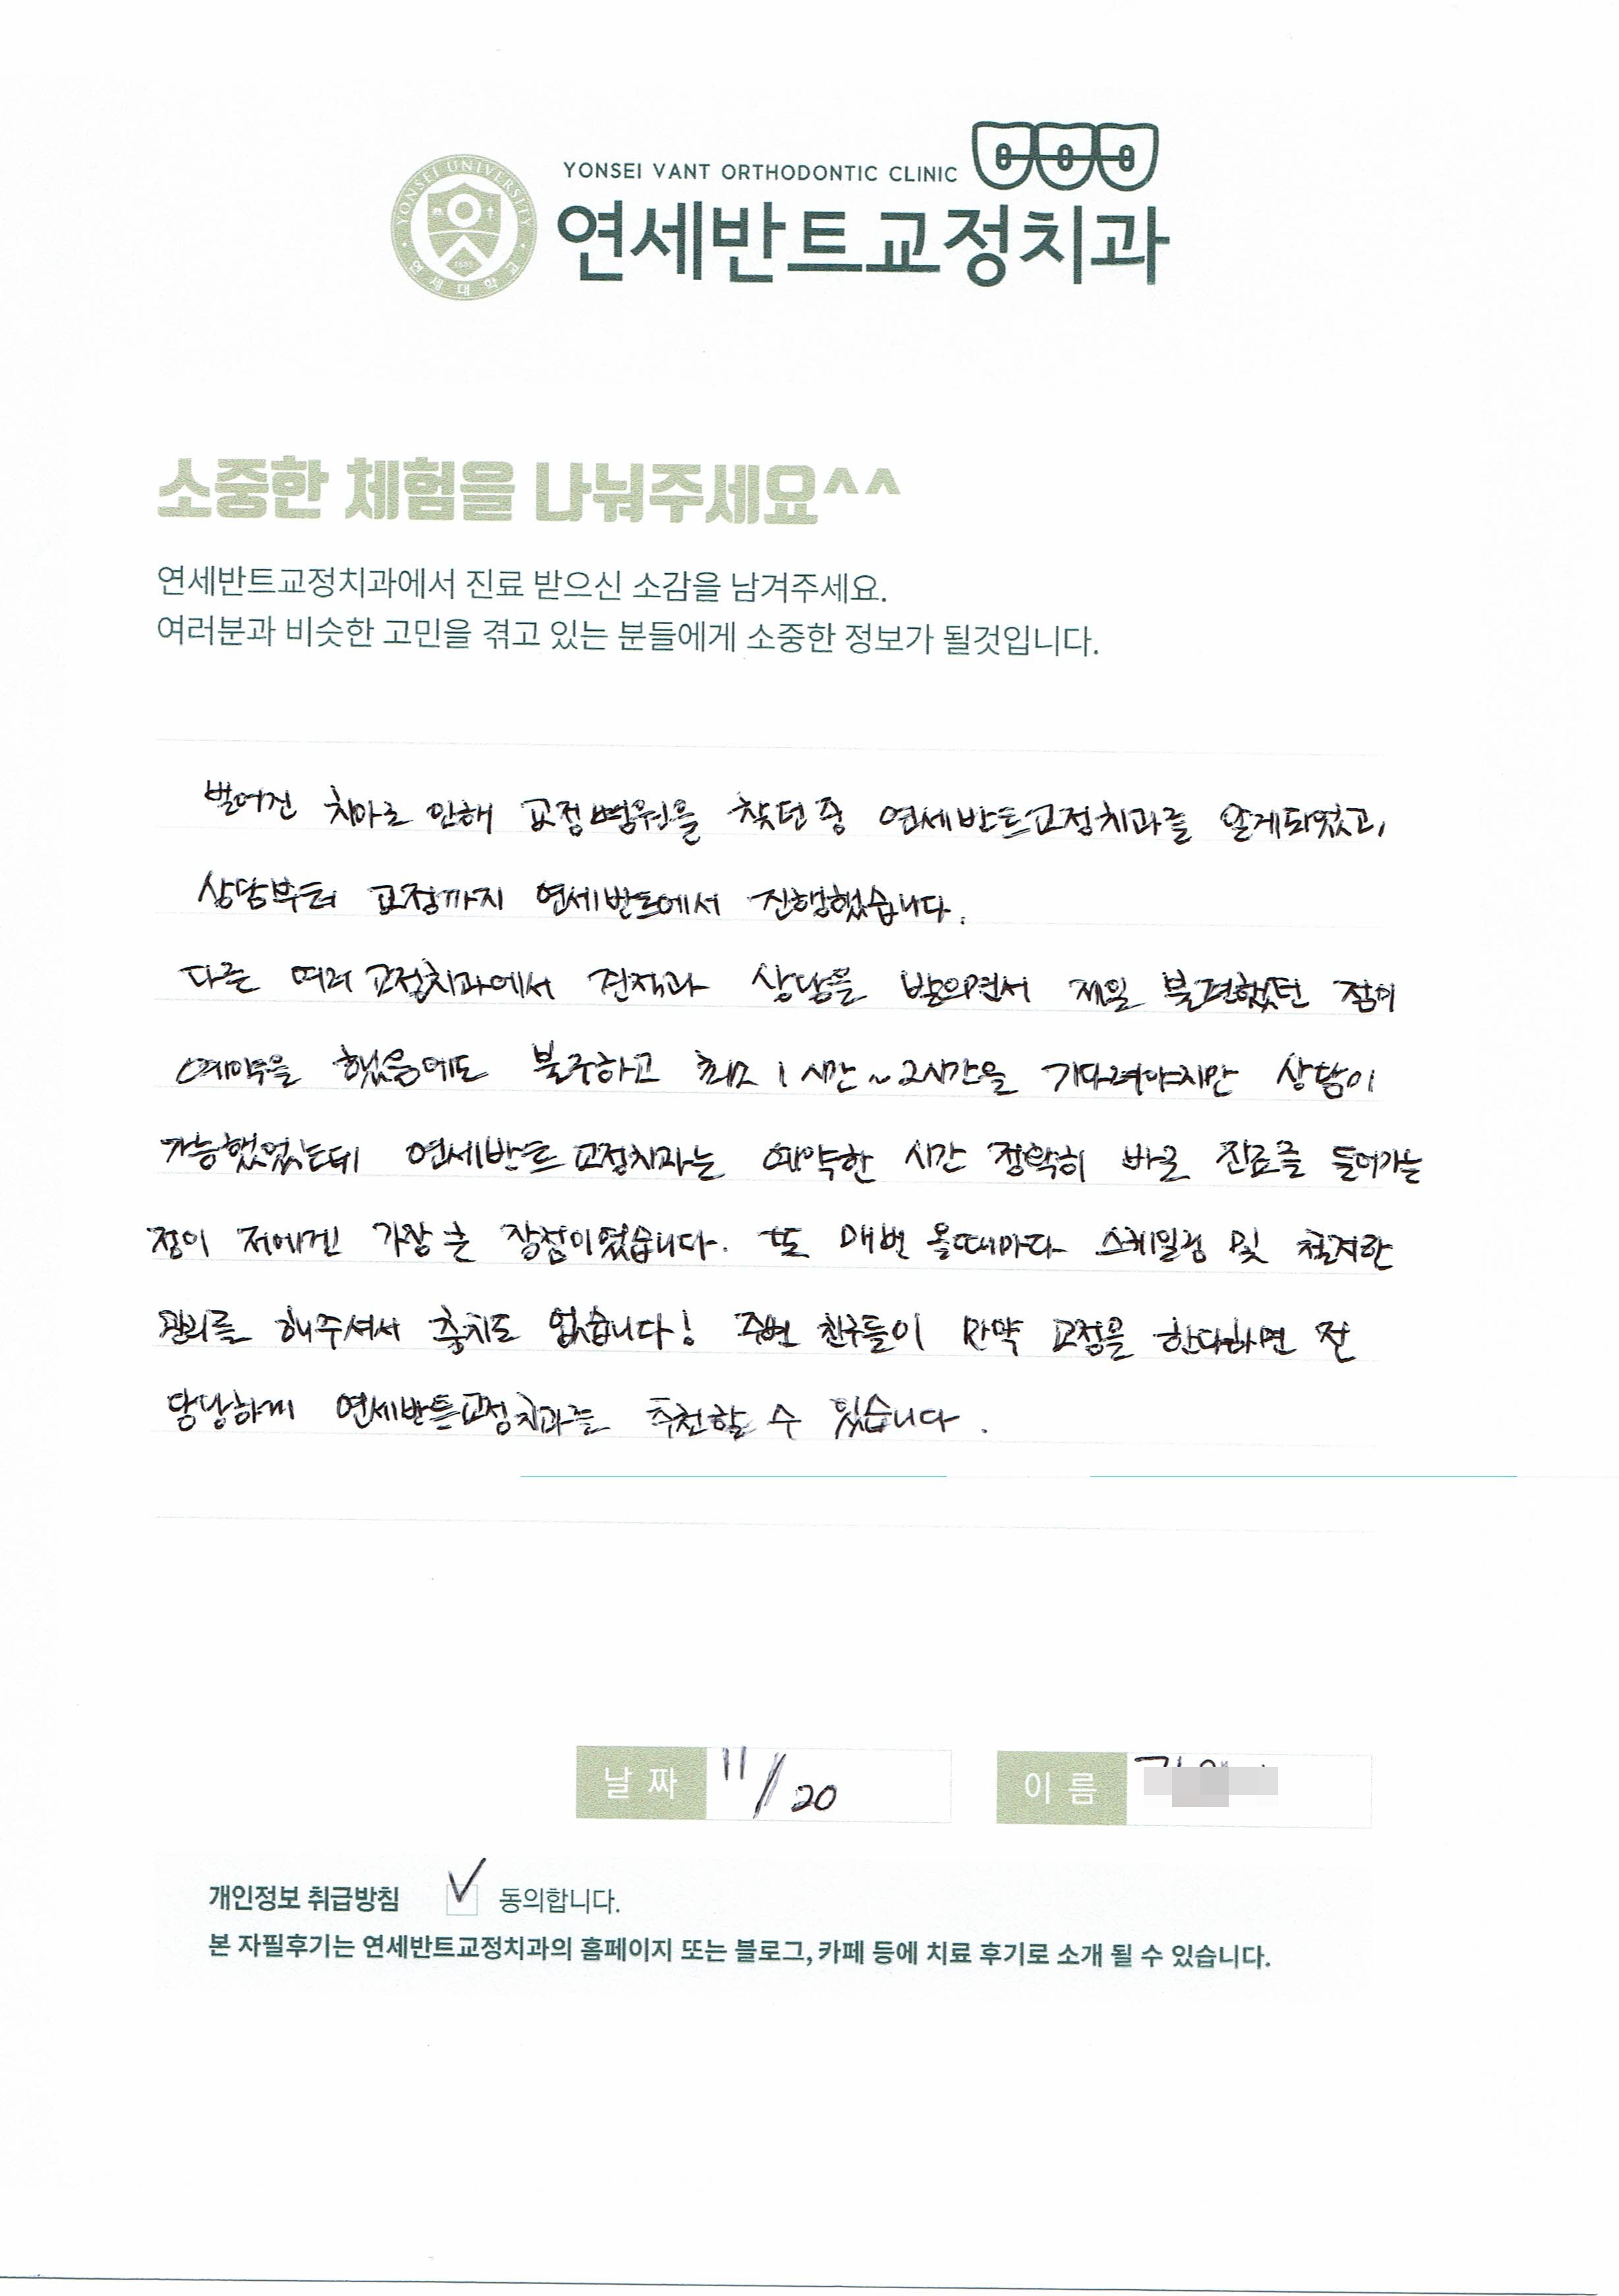 YONSEI VANT ORTHODONTIC CLINIC
YONSEI UNIVERSITY
연세대학교
1885
연세반트교정치과
소중한 체험을 나눠주세요^^
연세반트교정치과에서 진료 받으신 소감을 남겨주세요.
여러분과 비슷한 고민을 겪고 있는 분들에게 소중한 정보가 될것입니다.
벌어진 치아로 인해 교정병원을 찾던 중 연세반트교정치과를 알게되었고,
상담부터 교정까지 연세반트에서 진행했습니다.
다른 여러 교정치과에서 견적과 상담을 받으면서 제일 불편했던 점이
예약을 했음에도 불구하고 최소 1시간~2시간을 기다려야지만 상담이
가능했었는데 연세반트교정치과는 예약한 시간 정확히 바로 진료를 들어가는
점이 저에겐 가장 큰 장점이였습니다. 또 매번 올때마다 스케일링 및 철저한
관리를 해주셔서 충치도 없습니다! 주변 친구들이 만약 교정을 한다하면 전
당당하게 연세반트교정치과를 추천할 수 있습니다.
날짜 11/20 이름
개인정보 취급방침 동의합니다.
본 자필후기는 연세반트교정치과의 홈페이지 또는 블로그, 카페 등에 치료 후기로 소개 될 수 있습니다.